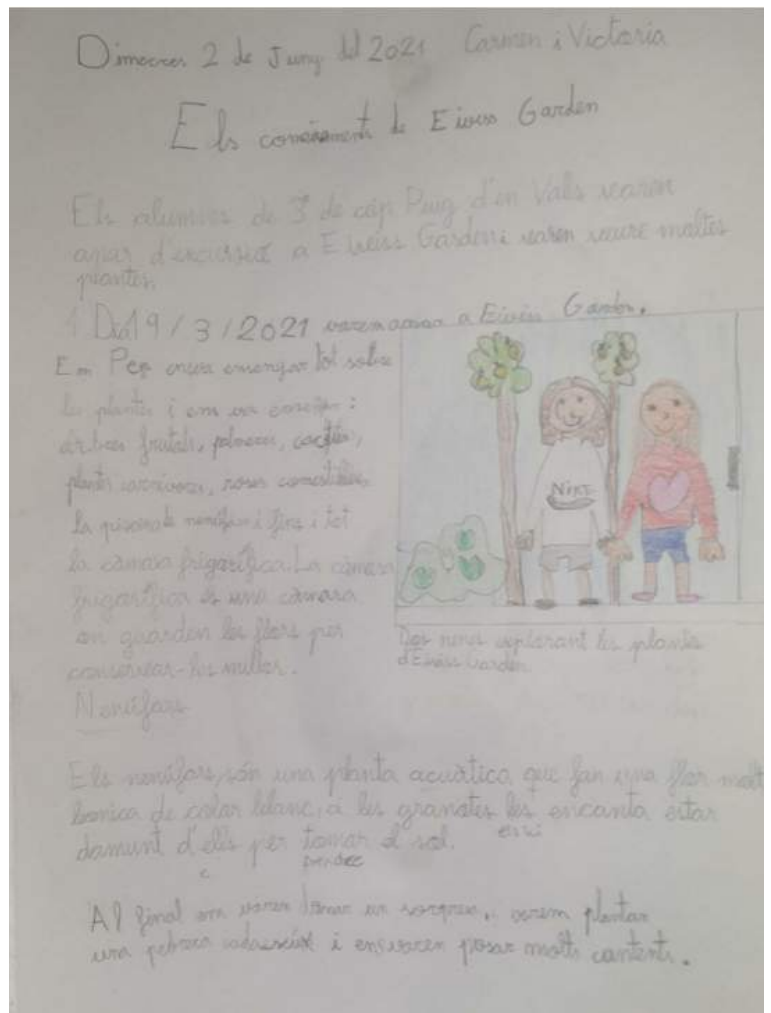 Dimecres 2 de Juny del 2021 Carmen i Victoria
Els de Eiviss Garden
Els alumnes de 3r de cep Puig d'en Valls varen
anar d'excursió a Eiviss Garden i varen veure moltes
plantes.
Dia 19/3/2021 varem anar a Eiviss Garden.
Em Pep ensva ensenyar tot sobre
les plantes i em va ensenyar:
arbres frutals, palmeres, cactus,
plantes carnivores, roses comestibles,
la de nenúfars i fins i tot
la càmara frigorífica. La càmara
frigorífica és una càmara
on guarden les flors per
conservar-les millor.
NIKE
Dos nenes explorant les plantes
d'Eiviss Garden
Nenúfars
Els nenúfars, són una planta acuàtica que fan una flor molt
bonica de color blanc, a les granotes les encanta estar
damunt d'ells per tomar el sol.
prendre
Al final ens varen donar un sorpren, varem plantar
una pebrera cadascún i ensvaren posar molts contents.